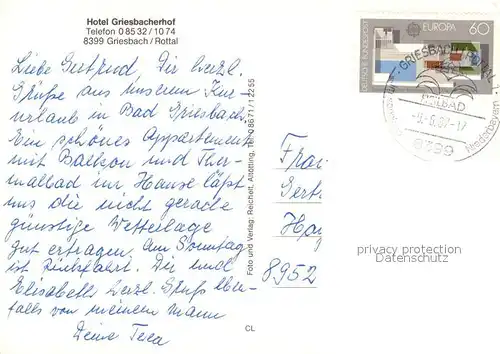 Hotel Griesbacherhof
Telefon 0 85 32 / 10 74
8399 Griesbach / Rottal
Liebe Gertrud, Dir herzl.
Grüße aus unserem Kur-
urlaub in Bad Griesbach.
Ein schönes Appartement
mit Balkon und Ther-
malbad im Hause läßt
uns die nicht gerade
günstige Wetterlage
gut ertragen. Am Sonntag
ist Rückfahrt. Dir und
Elisabeth herzl. Gruß eben-
falls von meinem Mann
Deine
CL
Foto und Verlag: Reichelt, Altötting, Tel. 0 86 71 / 12 55
DEUTSCHE BUNDESPOST
EUROPA
60
GRIESBACH I. ROTTAL
HEILBAD
8399
Niederbayern
Frau
8952
privacy protection
Datenschutz